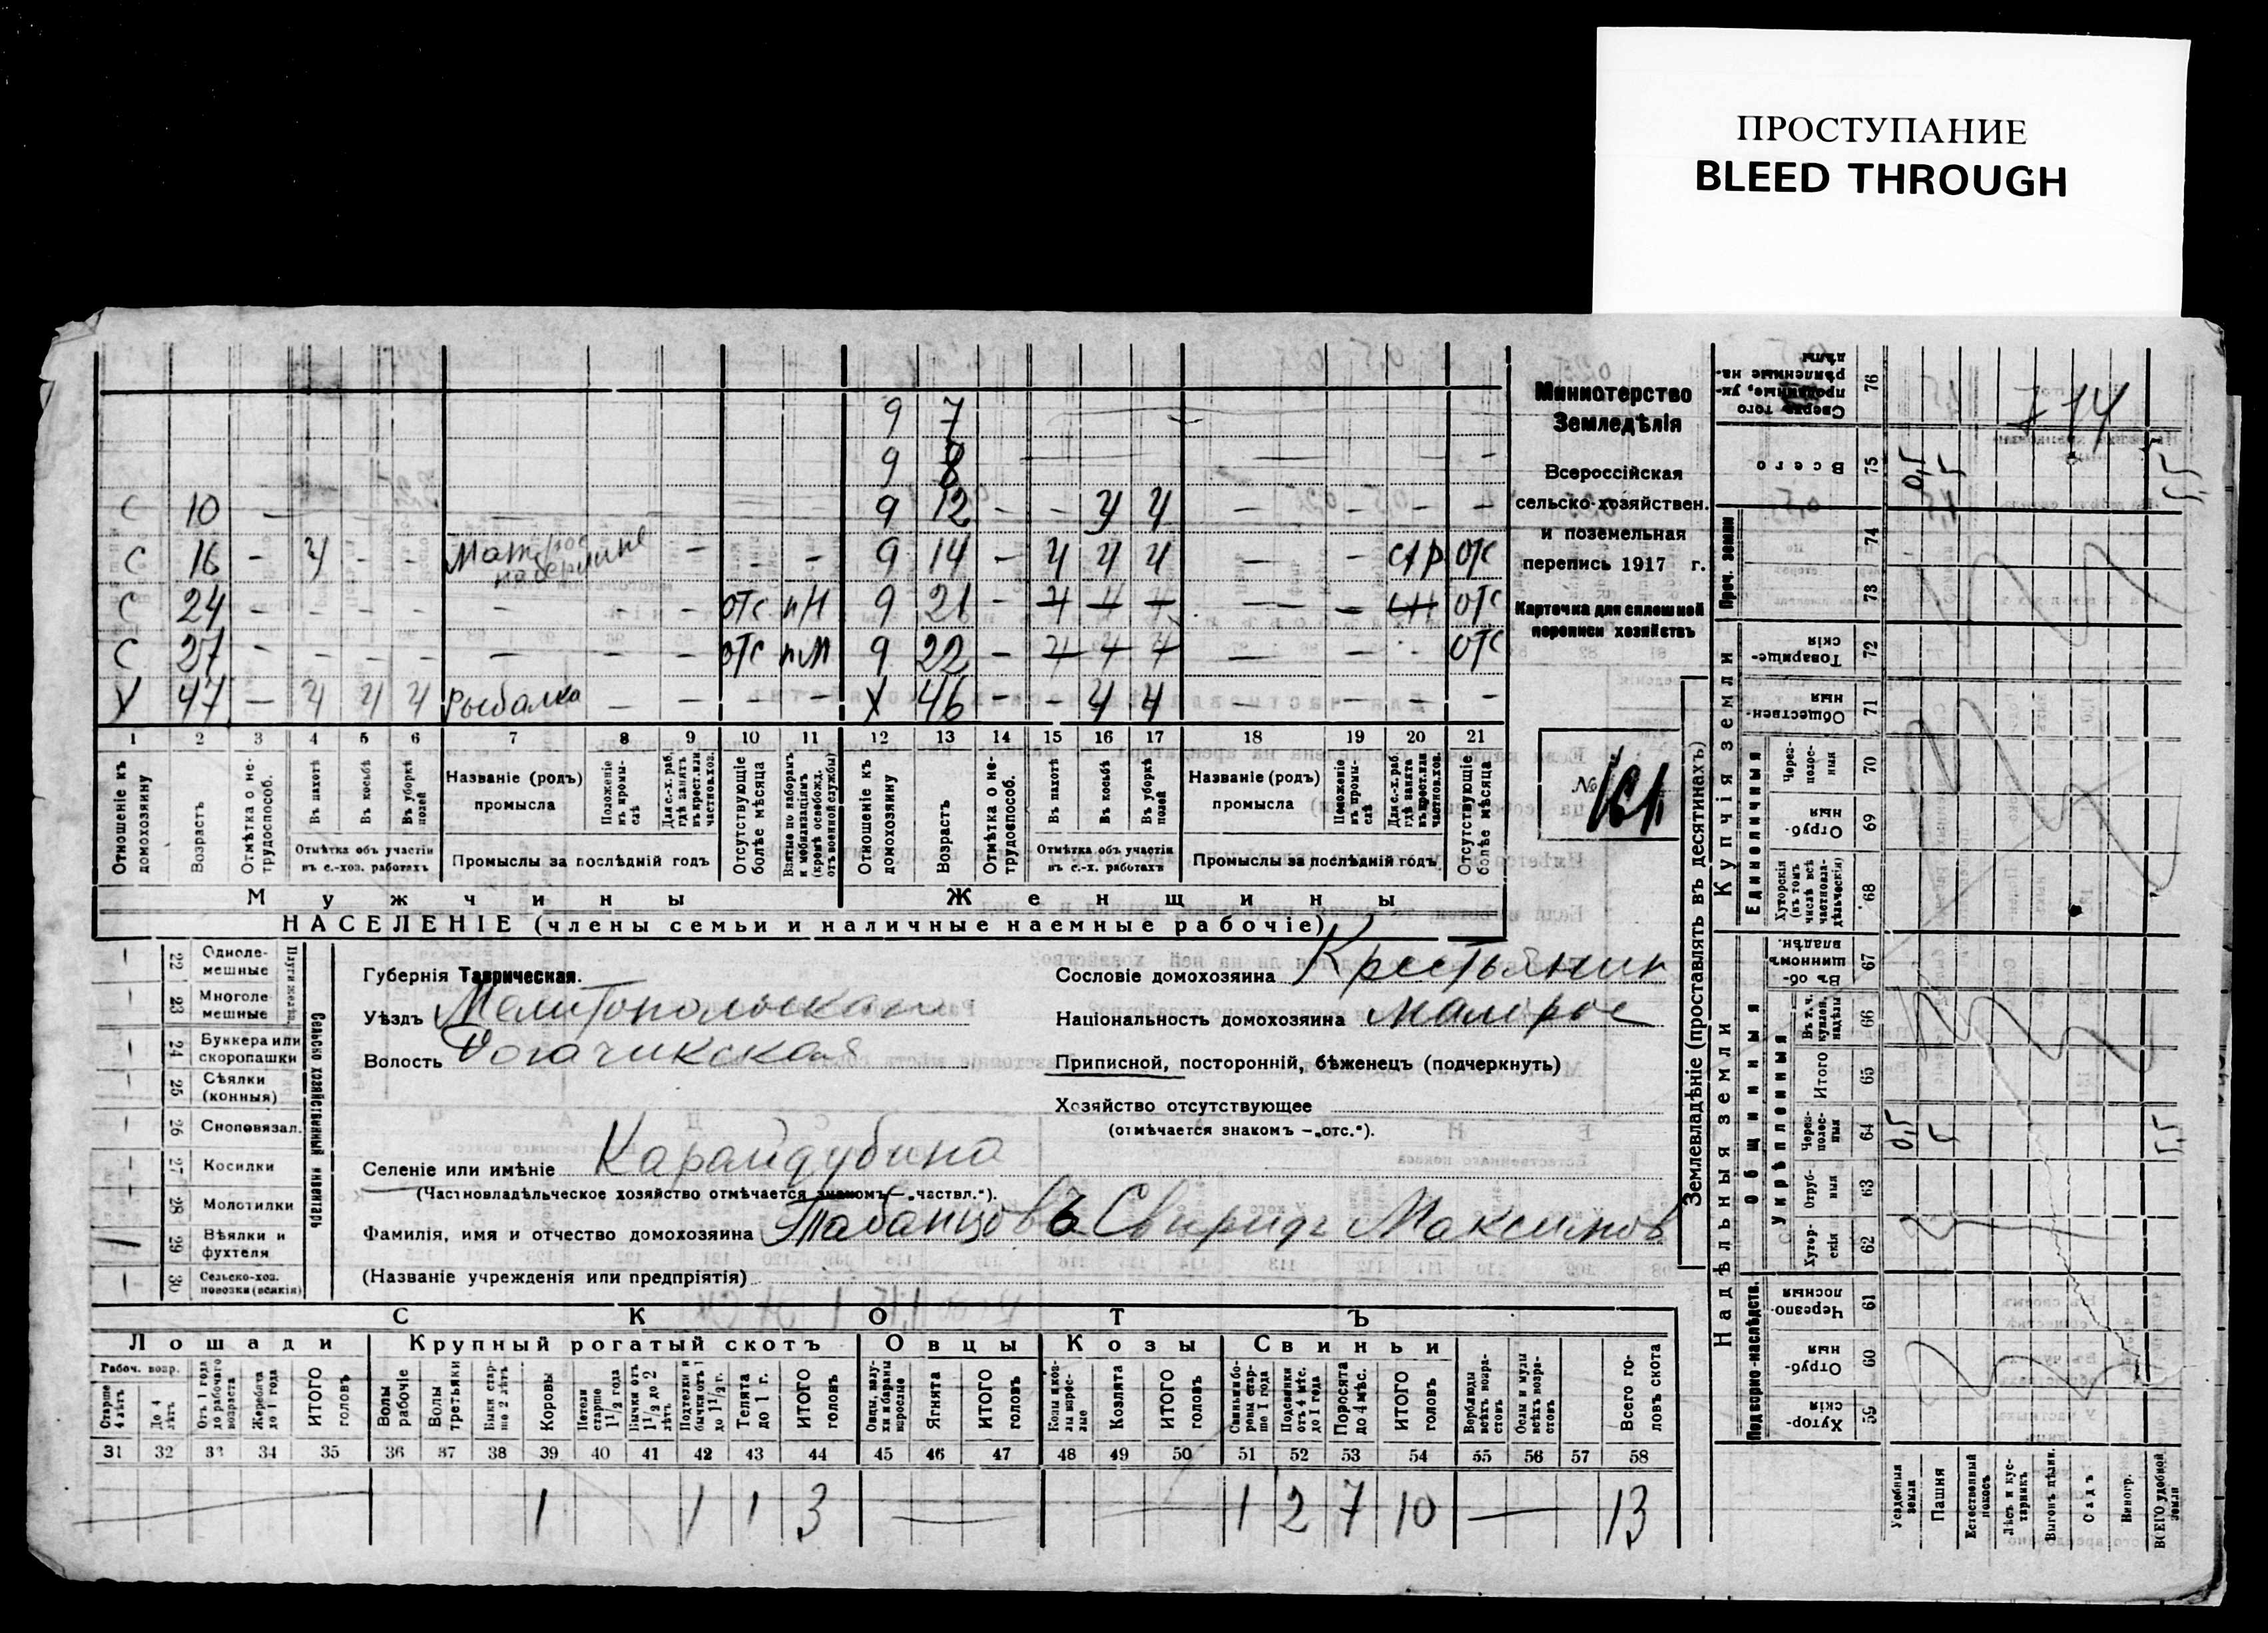 ПРОСТУПАНИЕ
BLEED THROUGH
9 7
9 8
С 10 — 9 12 - - У У — - - -
С 16 - Ч - - Матрос - - - 9 14 - Ч Ч Ч — - СХР ОТС
С 24 - - - - — - - ОТС ПН 9 21 - Ч Ч — - ОТС
С 27 - - - - — - - ОТС ПМ 9 22 - — - ОТС
Х 47 - Ч Ч Ч Рыбалка — - - - Х 46 - - Ч Ч — - - -
1 2 3 4 5 6 7 8 9 10 11 12 13 14 15 16 17 18 19 20 21
Отношеніе къ домохозяину
Возрастъ
Отмѣтка о не-трудоспособ.
Въ пахотѣ
Въ косьбѣ
Въ уборкѣ полей
Отмѣтка объ участіи въ с.-хоз. работахъ
Названіе (родъ) промысла
Положеніе въ промы-слѣ
Для с.-х. раб. гдѣ занятъ въ крест. или частнов. хоз.
Промыслы за послѣдній годъ
Отсутствующіе болѣе мѣсяца
Взятые по наборамъ и мобилизаціямъ (кромѣ освобожд. отъ военной службы)
Отношеніе къ домохозяину
Возрастъ
Отмѣтка о не-трудоспособ.
Въ пахотѣ
Въ косьбѣ
Въ уборкѣ полей
Отмѣтка объ участіи въ с.-х. работахъ
Названіе (родъ) промысла
Положеніе въ промы-слѣ
Для с.-х. раб. гдѣ занята въ крест. или частнов. хоз.
Промыслы за послѣдній годъ
Отсутствующіе болѣе мѣсяца
Мужчины Женщины
НАСЕЛЕНІЕ (члены семьи и наличные наемные рабочіе)
Министерство
Земледѣлія
Всероссійская
сельско-хозяйствен.
и поземельная
перепись 1917 г.
Карточка для сплошной
переписи хозяйствъ
№ 161
22 Одноле-мешные
23 Многоле мешные
Плуги желѣзн.
24 Буккера или скоропашки
25 Сѣялки (конныя)
26 Сноповязал.
27 Косилки
28 Молотилки
29 Вѣялки и фухтеля
30 Сельско-хоз. повозки (всякія)
Сельско хозяйственный инвентарь
Губернія Таврическая.
Уѣздъ Мелитопольскаго
Волость Рогачикская
Селеніе или имѣніе Карайдубина
(Частновладѣльческое хозяйство отмѣчается знакомъ—„частвл.“).
Фамилія, имя и отчество домохозяина Табанцовъ Свиридъ Максимов
(Названіе учрежденія или предпріятія)
Сословіе домохозяина Крестьянин
Національность домохозяина малорос
Приписной, посторонній, бѣженецъ (подчеркнуть)
Хозяйство отсутствующее
(отмѣчается знакомъ —„отс.“).
СКОТЪ
Лошади Крупный рогатый скотъ Овцы Козы Свиньи
Рабоч. возр.
Старше 4 лѣтъ
До 4 лѣтъ
Отъ 1 года до рабочаго возраста
Жеребята до 1 года
ИТОГО головъ
Волы рабочіе
Волы третьяки
Быки стар-ше 2 лѣтъ
Коровы
Нетели старше 1 1/2 года
Бычки отъ 1 1/2 до 2 лѣтъ
Подтелки и бычки отъ 1 до 1 1/2 г.
Телята до 1 г.
ИТОГО головъ
Овцы, валу-хи и бараны взрослые
Ягнята
ИТОГО головъ
Козы и коз-лы взрос-лые
Козлята
ИТОГО головъ
Свиньи и бо-ровы стар-ше 1 года
Подсвинки отъ 4 мѣс. до 1 года
Поросята до 4 мѣс.
ИТОГО головъ
Верблюды всѣхъ возра-стовъ
Ослы и мулы всѣхъ возра-стовъ
Всего го-ловъ скота
31 32 33 34 35 36 37 38 39 40 41 42 43 44 45 46 47 48 49 50 51 52 53 54 55 56 57 58
1 1 1 3 — — 1 2 7 10 — 13
Землевладѣніе (проставлять въ десятинахъ)
Надѣльныя земли Купчія земли Проч. земли
Подворно-наслѣдств.
Общинныя
Укрѣпленныя
Единоличныя
Хутор-скія 59
Отруб-ныя 60
Черезпо-лосныя 61
Хутор-скія 62
Отруб-ныя 63
Через-полос-ныя 64 0,5 5 5,5
Итого 65
Въ т. ч. куплен. надѣлы 66
Въ об-щинномъ владѣн. 67
Хуторскія (въ томъ числѣ всѣ частновла-дѣльческія) 68
Отруб-ныя 69
Через-полос-ныя 70
Обществен-ныя 71
Товарище-скія 72
73
74
Всего 75 0,5 5 5,5
Сверхъ того проданные, ук-рѣпленные на-дѣлы 76
+14
Усадебная земля
Пашня
Естественный покосъ
Лѣсъ и кус-тарникъ
Выгонъ цѣлин.
Садъ
Виногр.
ВСЕГО удобной земли